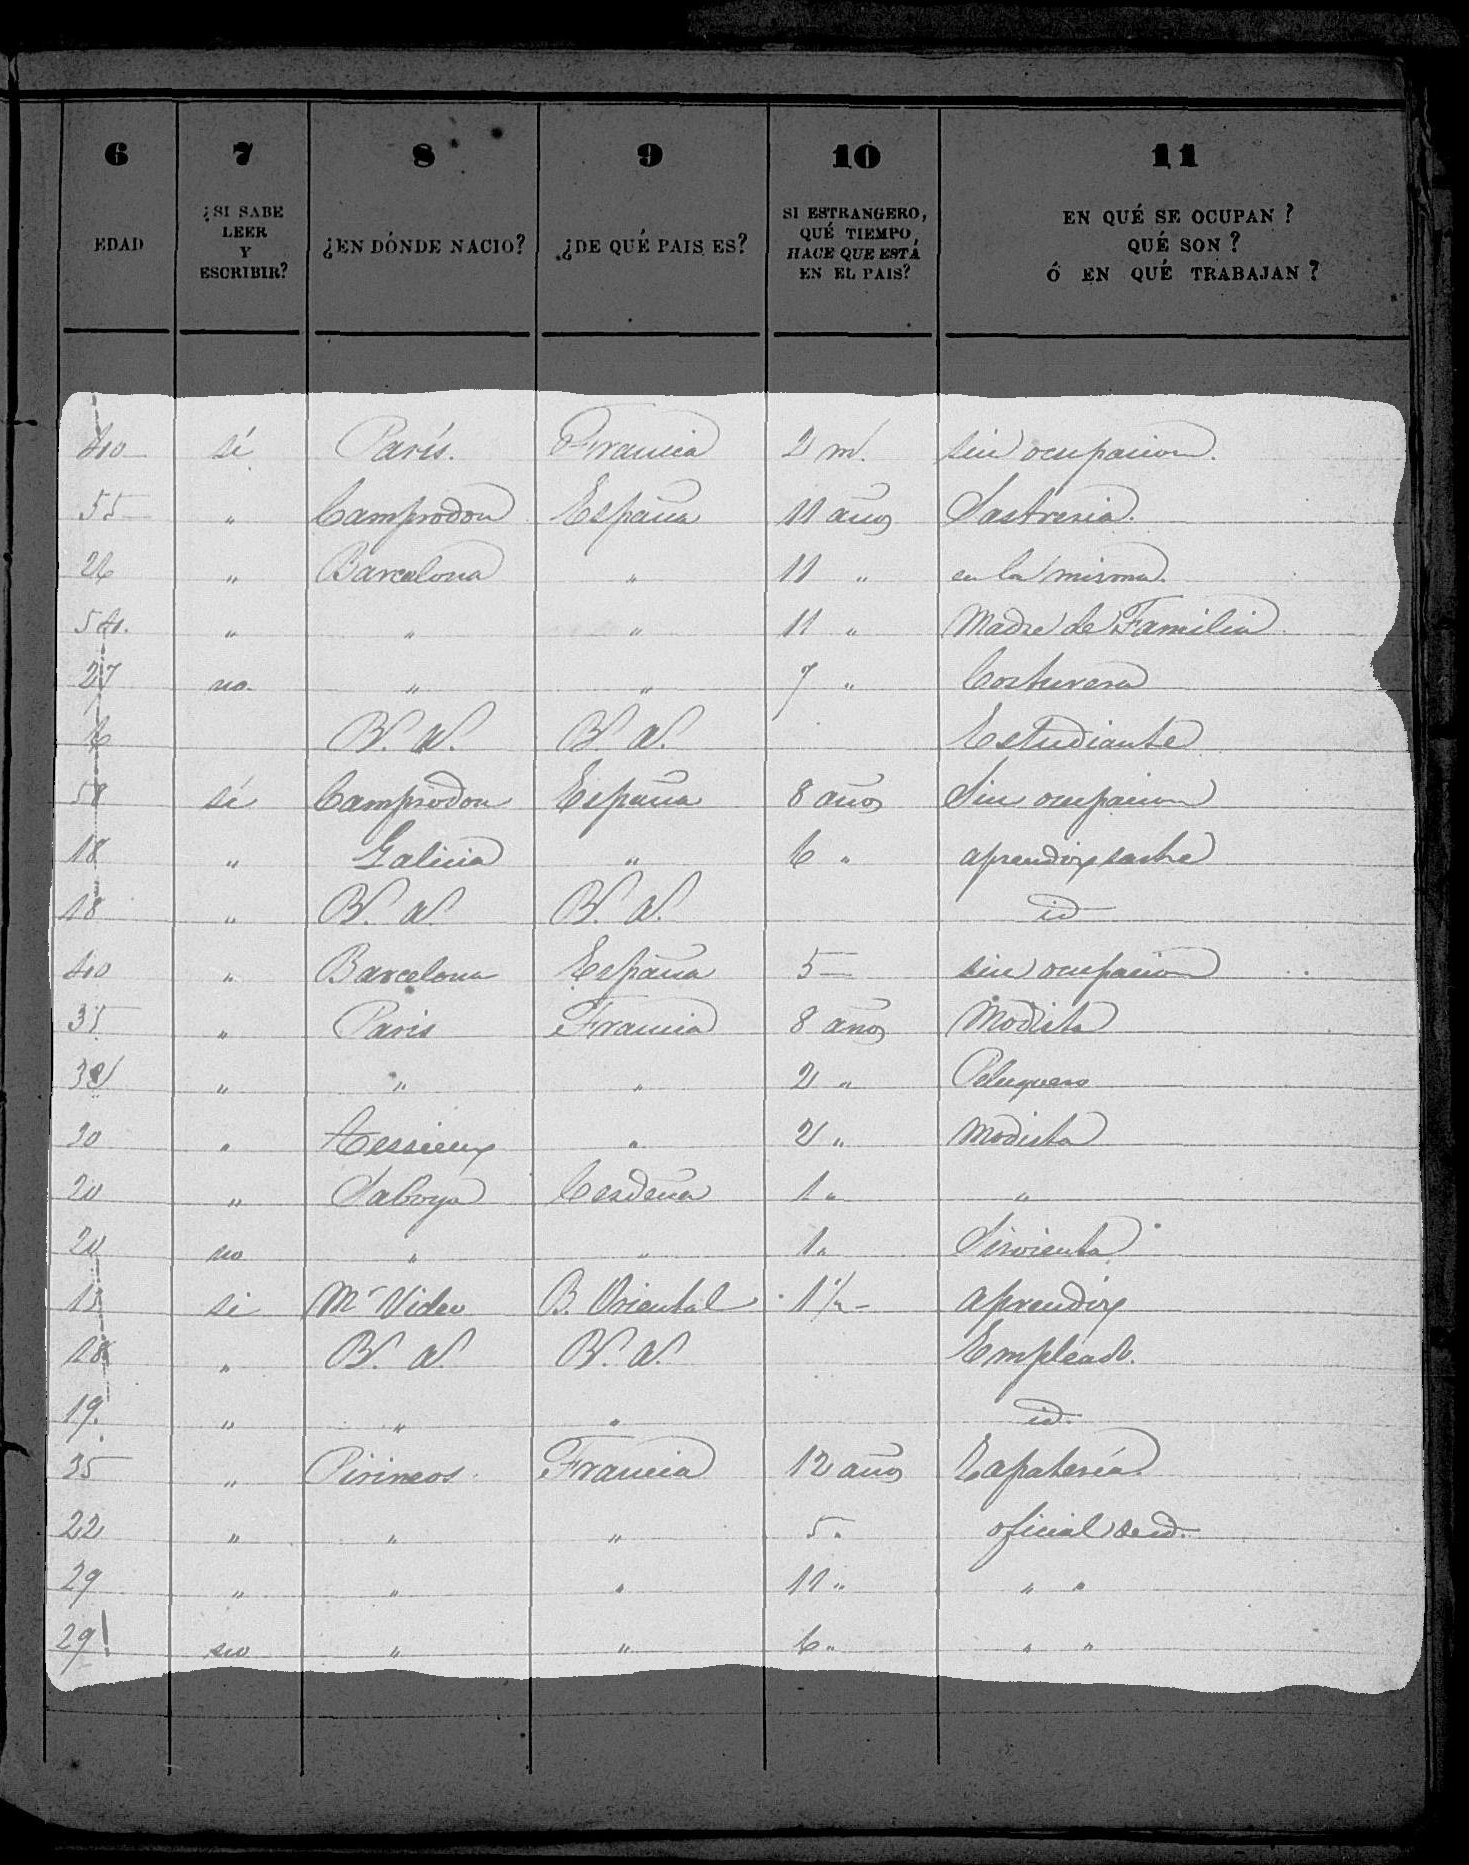 6 7 8 9 10 11
EDAD ¿SI SABE LEER Y ESCRIBIR? ¿EN DÓNDE NACIO? ¿DE QUÉ PAIS ES? SI ESTRANGERO, QUÉ TIEMPO HACE QUE ESTÁ EN EL PAIS? EN QUÉ SE OCUPAN? QUÉ SON? Ó EN QUÉ TRABAJAN?
40 sí París. Francia 2 m. sin ocupacion.
55 " Camprodon España 11 años Sastreria.
26 " Barcelona " 11 " en la misma.
54. " " " 11 " Madre de Familia
27 no " " 7 " Costurera
6 B. A. B. A. Estudiante
58 sí Camprodon España 8 años Sin ocupacion
18 " Galicia " 6 " aprendiz sastre
18 " B. A. B. A. id
40 " Barcelona España 5 — sin ocupacion
35 " Paris Francia 8 años Modista
" " " 2 " Peluquero
30 " " 2 " Modista
20 " Saboya Cerdeña 1 " "
20 no " " 1 " Sirvienta
15 si Mte Video B. Oriental 1 1/2 — aprendiz
18 " B. A. B. A. Empleado.
19. " " " id.
35 " Pirineos. Francia 12 años Zapatería
22 " " " 5 " oficial de id.
29 " " " 11 " " "
29 no " " 6 " " "